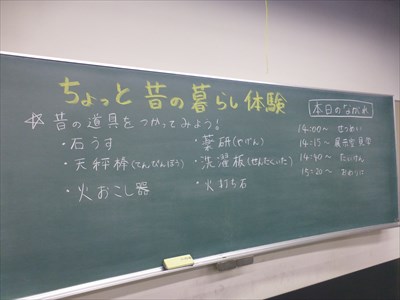 ちょっと 昔の暮らし体験
☆昔の道具をつかってみよう!
・石うす
・天秤棒(てんびんぼう)
・火おこし器
・薬研(やげん)
・洗濯板(せんたくいた)
・火打ち石
本日のながれ
14:00~ せつめい
14:15~ 展示室見学
14:40~ たいけん
15:20~ おわりに